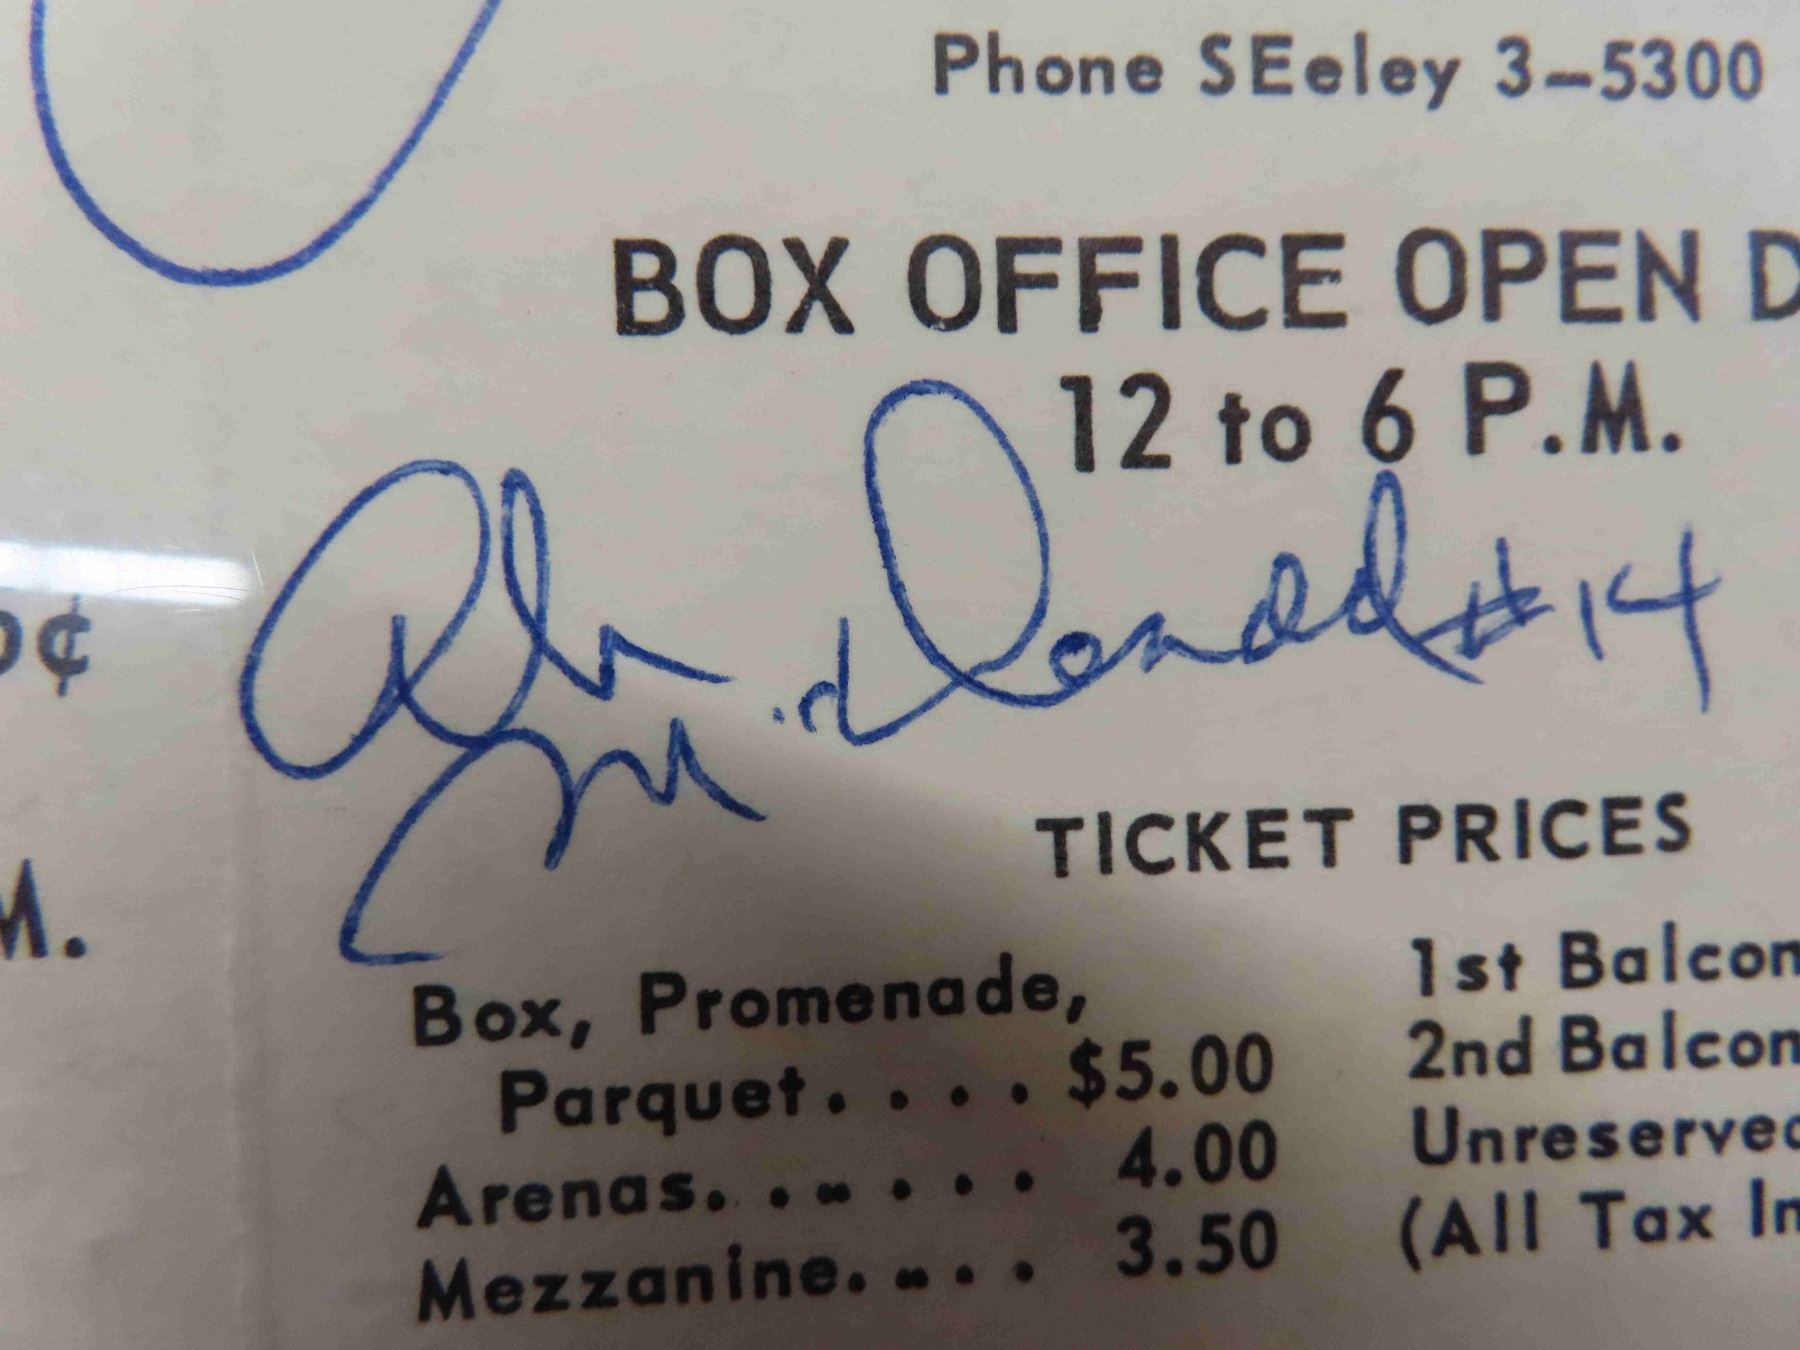 Phone SEeley 3-5300
BOX OFFICE OPEN D
12 to 6 P.M.
Ab McDonald #14
¢
M.
TICKET PRICES
Box, Promenade,
Parquet.... $5.00
Arenas....... 4.00
Mezzanine..... 3.50
1st Balcon
2nd Balcon
Unreserved
(All Tax In